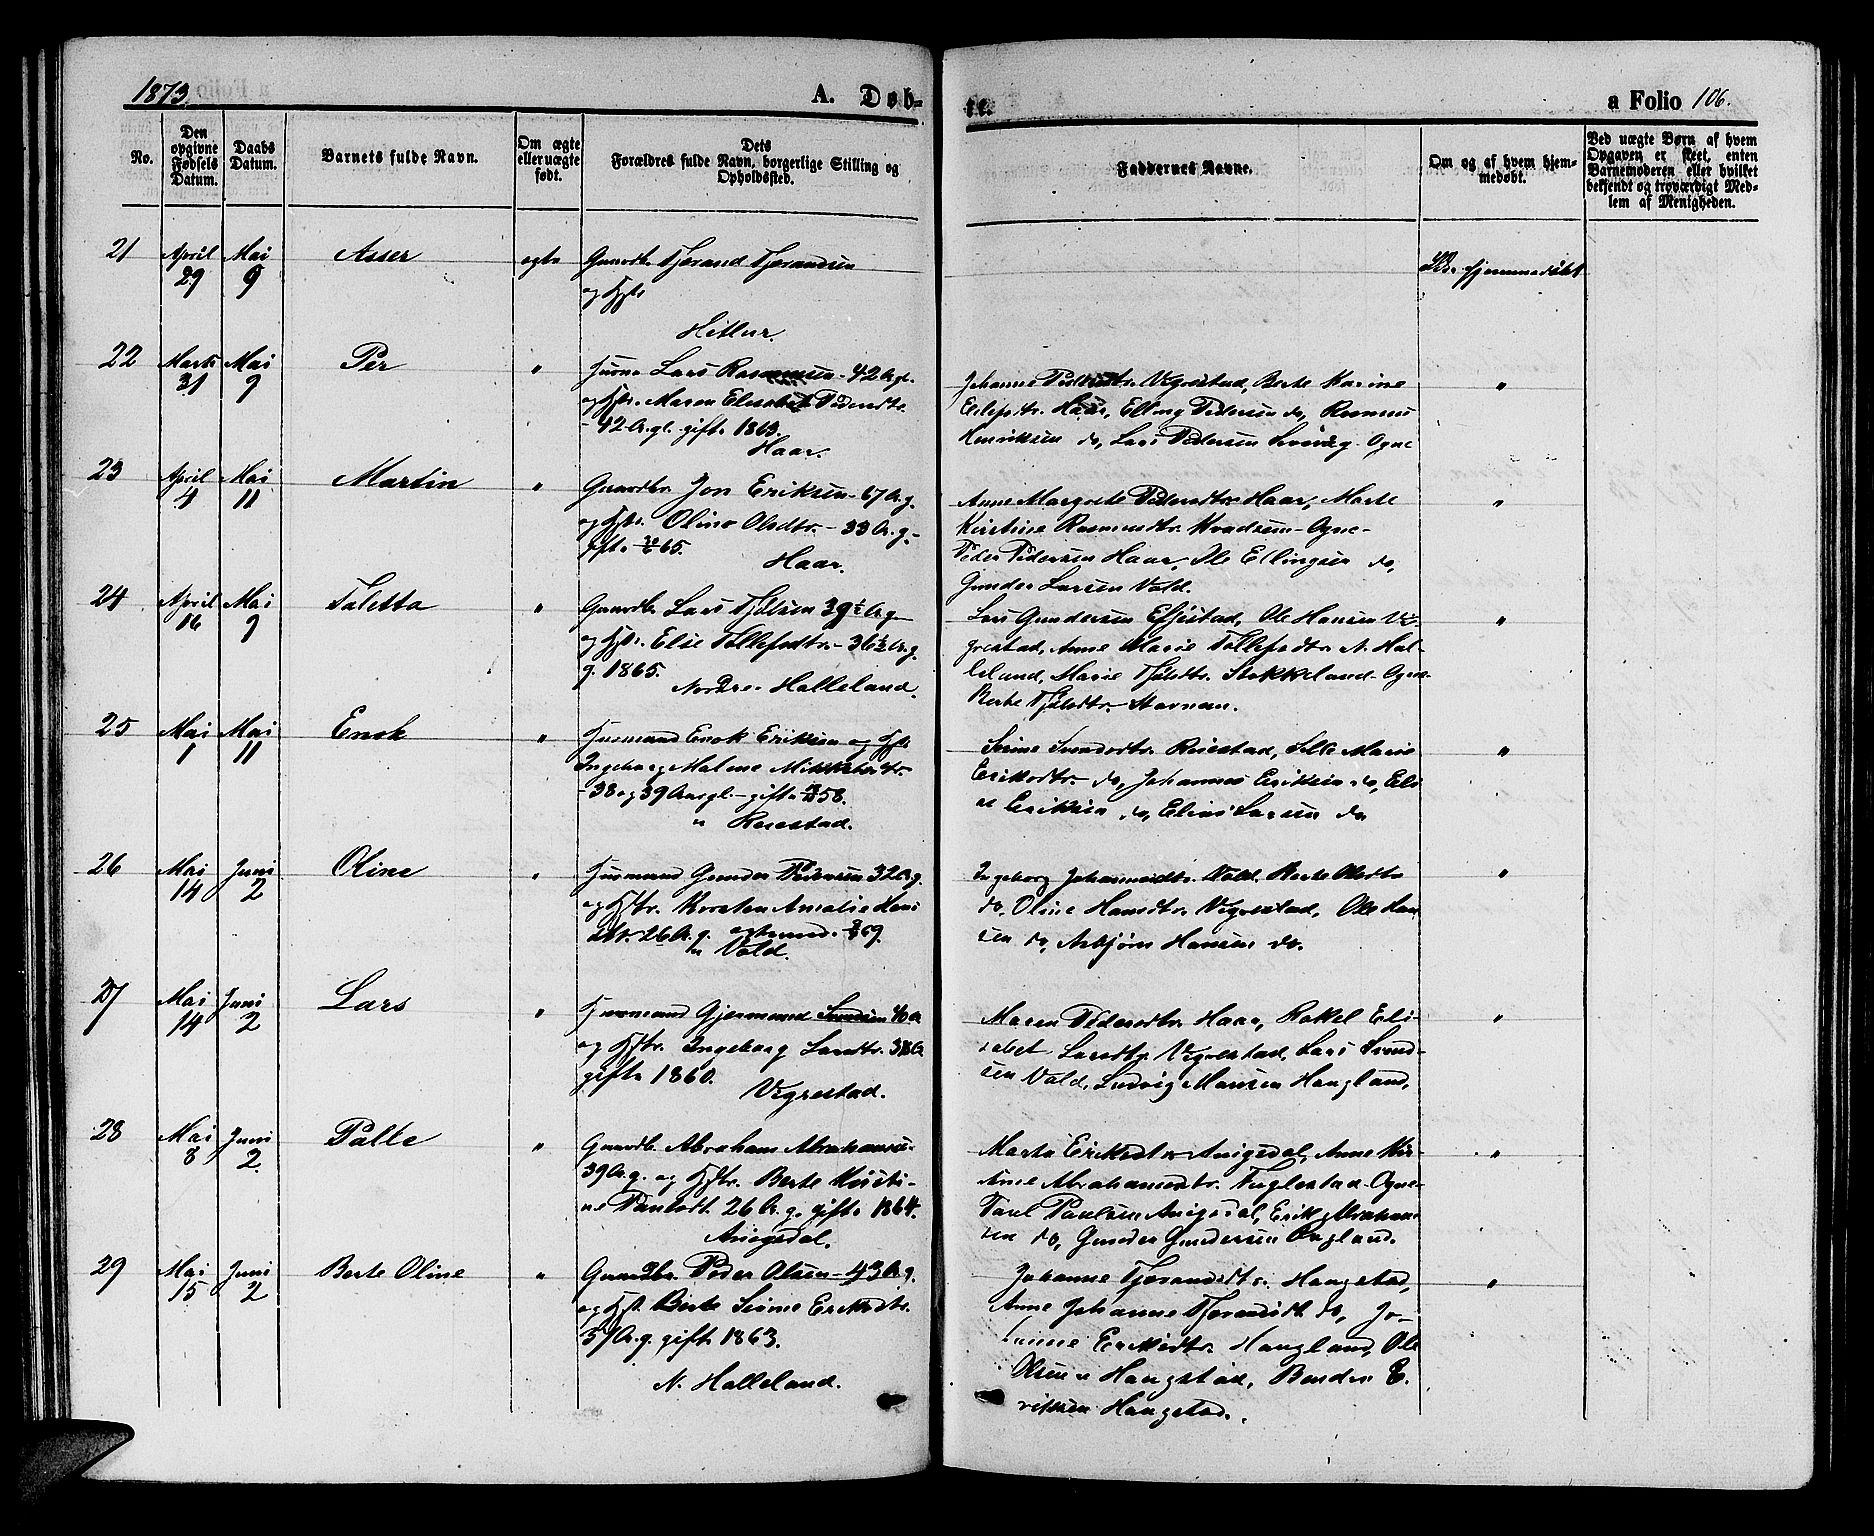 1873.
A. Døb-
te.
a Folio 106.
No.
Den
opgivne
Fødsels
Datum.
Daabs
Datum.
Barnets fulde Navn.
Om ægte
eller uægte
født.
Dets
Forældres fulde Navn, borgerlige Stilling og
Opholdssted.
Faddernes Navne.
Om og af hvem hjem-
medøbt.
Ved uægte Børn af hvem
Opgaven er skeet, enten
Barnemoderen eller hvilket
bekjendt og troværdigt Med-
lem af Menigheden.
21 April 29 Mai 9 Asser ægte
Gaardbr. Tjærand Tjærandsen
og Hstr.
Hetlur.
hjemmedøbt
22 Marts 31 Mai 9 Per "
Lars Rasmussen - 42 Ar gl.
og Hstr. Maren Elisabet Pedersdtr.
- 42 Ar. gl. gift 1863.
Haar.
Johanne Vigrestad, Berte Karine
Haar, Elling Pedersen do, Rasmus
Henriksen do, Lars Pedersen Ogne
"
23 April 4 Mai 11 Martin "
Gaardbr. Jon Eriksen - 67 Ar. g.
og Hstr. Oline Olsdtr. - 33 Ar. g. -
gift 65.
Haar.
Anne Margrete Pedersdtr. Haar, Marte
Kirstine Rasmusdtr. Ogne
Peder Pedersen Haar, Ole Ellingsen do,
Gunder Larsen Vold.
"
24 April 16 Mai 9 Taletta "
Gaardbr. Lars Tjølsen 39½ Ar. g
og Hstr. Elie Tollefsdtr. - 36½ Ar. g.
g. 1865.
Nordre Halleland.
Lars Gundersen Ole Hansen Vi-
grestad, Anne Marie Tollefsdtr. N. Hal-
leland, Marie Tjølsdtr. Stokkeland - Ogne
Berte Tjølsdtr. Stavnem.
"
25 Mai 1 Mai 11 Enok "
Husmand Enok Eriksen og Hstr
Ingeborg Malene
- 38 og 39 Ar gl. - gift 58.
u Reiestad.
Serine Svendsdtr. Reiestad, Sille Marie
Eriksdtr. do, Johannes Eriksen do, Eli-
as Eriksen do, Elias Larsen do
"
26 Mai 14 Juni 2 Oline "
Husmand Gunder Pedersen 32 Ar g.
og Hstr. Karsten Amalie Hans
dtr. 26 Ar. g. 69.
u Vold.
Ingeborg Vold. Berte Olsdtr
do, Oline Hansdtr. Vigrestad, Ole Han
sen do, Asbjørn Hansen do.
"
27 Mai 14 Juni 2 Lars "
Husmand Gjermund Svendsen 40 Ar
og Hstr. Ingeborg Larsdtr. 38 Ar
gift 1860.
Vigrestad.
Maren Pedersdtr. Haar, Rakel Eli-
sabet Larsdtr. Vigrestad, Lars Svend-
sen Vold, Ludvig Hansen Haugland.
"
28 Mai 8 Juni 2 Palle "
Gaardbr. Abraham Abrahamsen
39 Ar. g. og Hstr. Berte Kristi-
ne 26 Ar. g. gift 1864.
Aniegsdal.
Marta Eriksdtr. Aniegsdal, Anne
Anne Abrahamsdtr. Fuglestad - Ogne
Paul Paulsen Aniegsdal, Erik Abraham
sen do, Gunder Gundersen
"
29 Mai 15 Juni 2 Berte Oline "
Gaardbr. Peder Olsen - 43 Ar. g.
og Hstr. Berte Serine Eriksdtr.
37 Ar. g. gift 1863.
N. Halleland.
Johanne Tjærandsdtr. Haugstad,
Anne Johanne Tjærandsdt. do, Jo-
hanne Eriksdtr. Haugland, Ole
Olsen Haugstad, Bender E-
riksen Haugstad.
"